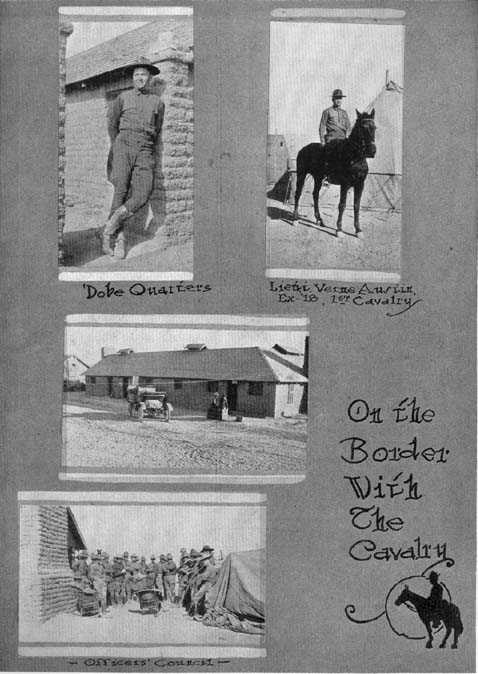 'Dobe Quarters
Lieut. Verne Austin,
Ex-'18, 1st Cavalry
On the
Border
With
The
Cavalry
- Officers' Council -